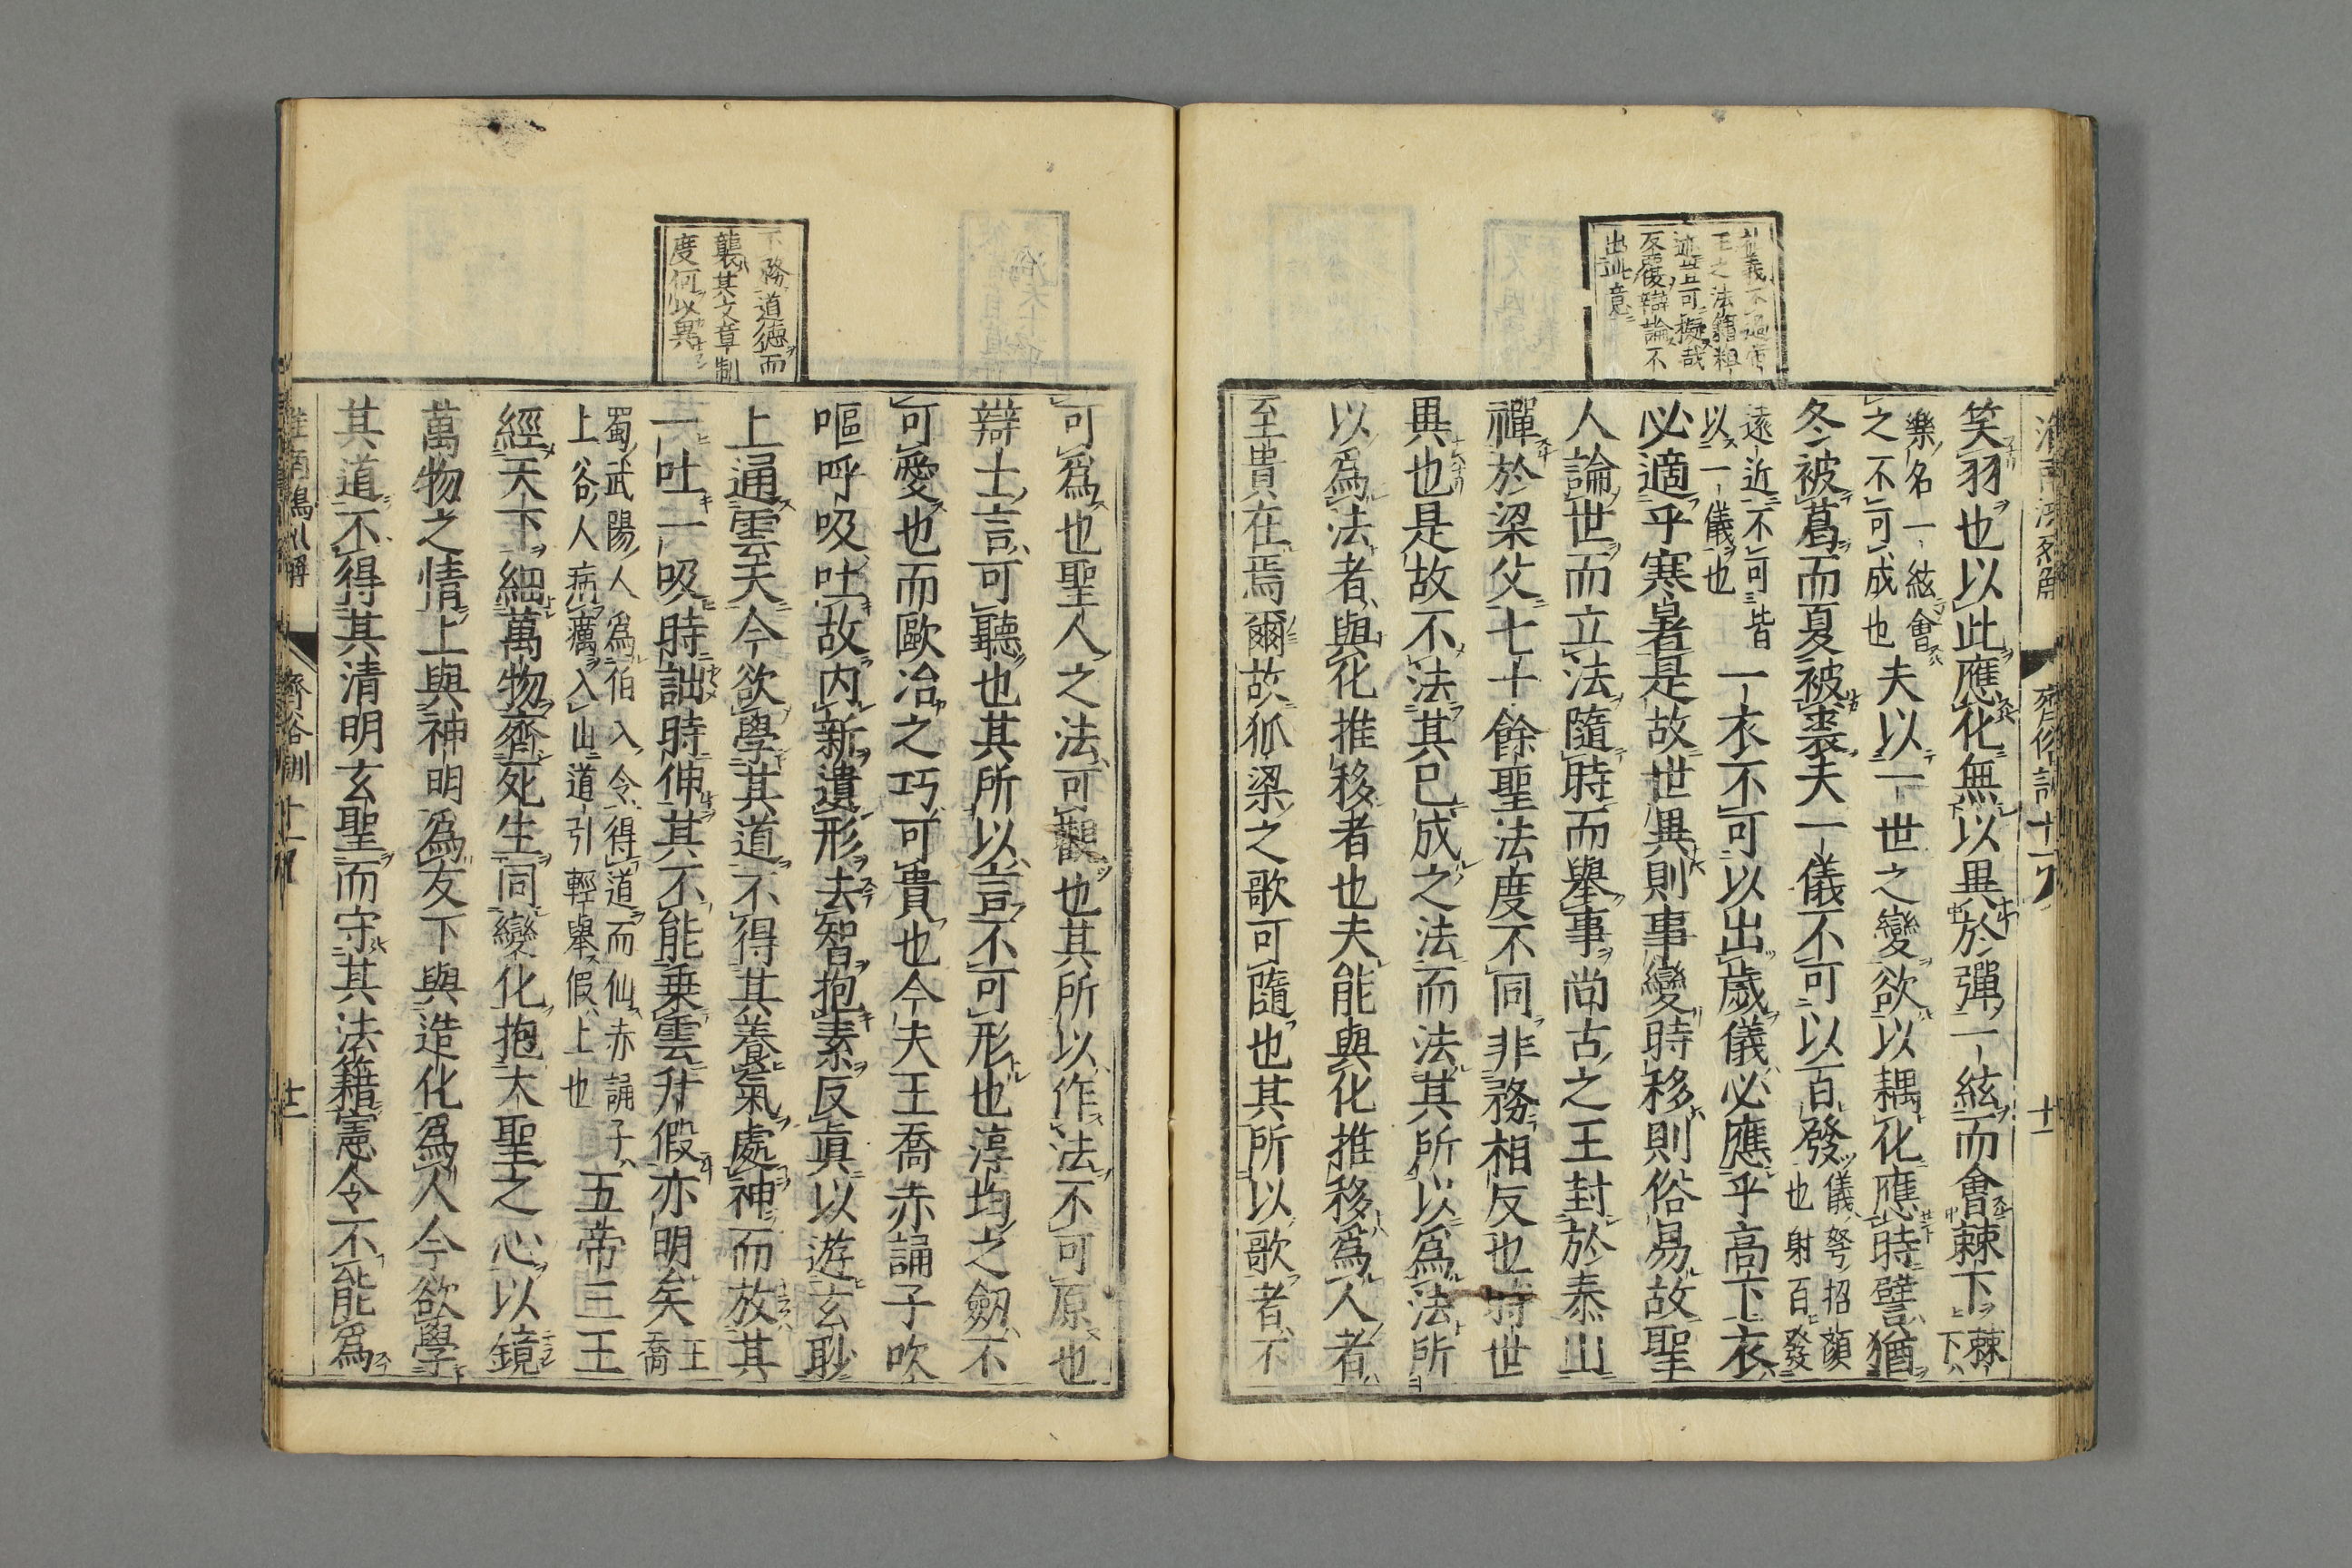 淮南鴻烈解
齊俗訓十一
十一
笑羽也以此應化無以異於彈一絃而會棘下棘下
樂名一絃會
之不可成也
夫以一世之變欲以耦化應時譬猶
冬被葛而夏被裘夫一儀不可以百發
儀弩招顏
也射百發
遠近不可皆
以一儀也
一衣不可以出歲儀必應乎高下衣
必適乎寒暑是故世異則事變時移則俗易故聖
人論世而立法隨時而舉事尚古之王封於泰山
禪於梁父七十餘聖法度不同非務相反也時世
異也是故不法其已成之法而法其所以爲法所
以爲法者與化推移者也夫能與化推移爲人者
至貴在焉爾故狐梁之歌可隨也其所以歌者不
王之法籍粗
迹豈可擬哉
反覆辯論不
出此意
可爲也聖人之法可觀也其所以作法不可原也
辯士言可聽也其所以言不可形也淳均之劒不
可愛也而歐冶之巧可貴也今夫王喬赤誦子吹
嘔呼吸吐故内新遺形去智抱素反眞以遊玄眇
上通雲天今欲學其道不得其養氣處神而放其
一吐一吸時詘時伸其不能乗雲升假亦明矣
王
喬
蜀武陽人爲伯入令得道而仙赤誦子
上谷人病癘入山道引輕舉假上也
五帝三王
經天下細萬物齊死生同變化抱大聖之心以鏡
萬物之情上與神明爲友下與造化爲人今欲學
其道不得其清明玄聖而守其法籍憲令不能爲
不務道德而
襲其文章制
度何以異
齊俗訓十一
十二